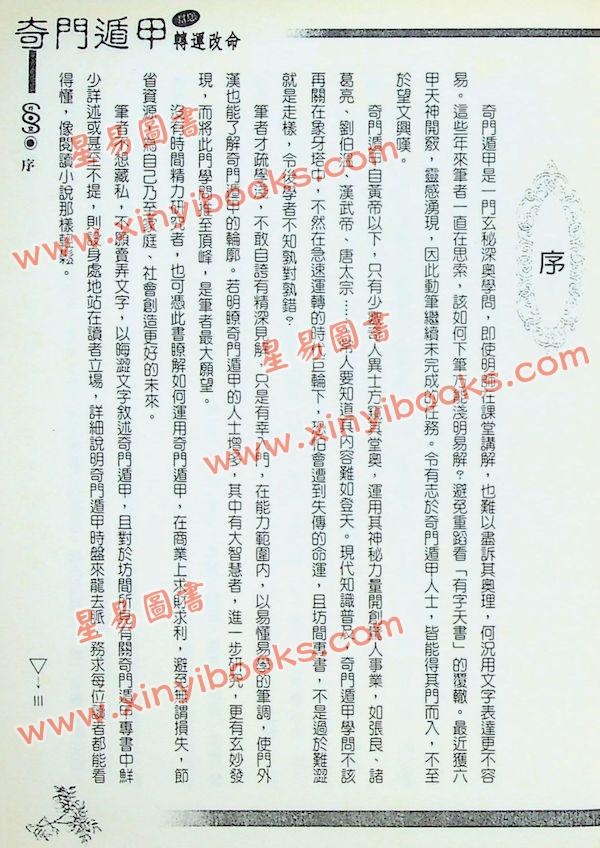 奇門遁甲
轉運改命
序
序
奇門遁甲是一門玄秘深奧學問，即使明師在課堂講解，也難以盡訴其奧理，何況用文字表達更不容
易。這些年來筆者一直在思索，該如何下筆乃能淺明易解？避免重蹈看「有字天書」的覆轍。最近獲六
甲天神開竅，靈感湧現，因此動筆繼續未完成的任務。令有志於奇門遁甲人士，皆能得其門而入，不至
於望文興嘆。
奇門遁甲自黃帝以下，只有少數奇人異士方窺其堂奧，運用其神秘力量開創驚人事業，如張良、諸
葛亮、劉伯溫、漢武帝、唐太宗……常人要知道其內容難如登天。現代知識普及，奇門遁甲學問不該
再關在象牙塔中，不然在急速運轉的時代巨輪下，恐怕會遭到失傳的命運，且坊間專書，不是過於難澀
就是走樣，令後學者不知孰對孰錯？
筆者才疏學淺，不敢自誇有精深見解，只是有幸入門，在能力範圍內，以易懂易學的筆調，使門外
漢也能了解奇門遁甲的輪廓。若明瞭奇門遁甲的人士增多，其中有大智慧者，進一步研究，更有玄妙發
現，而將此門學問推至頂峰，是筆者最大願望。
沒有時間精力研究者，也可憑此書瞭解如何運用奇門遁甲，在商業上求財求利，避免無謂損失，節
省資源，為自己乃至家庭、社會創造更好的未來。
筆者不想藏私，不願賣弄文字，以晦澀文字敘述奇門遁甲，且對於坊間所見有關奇門遁甲專書中鮮
少詳述或甚至不提，則設身處地站在讀者立場，詳細說明奇門遁甲時盤來龍去脈，務求每位讀者都能看
得懂，像閱讀小說那樣輕鬆。
III
星易圖書
www.xinyibooks.com
星易圖書
www.xinyibooks.com
星易圖書
www.xinyibooks.com